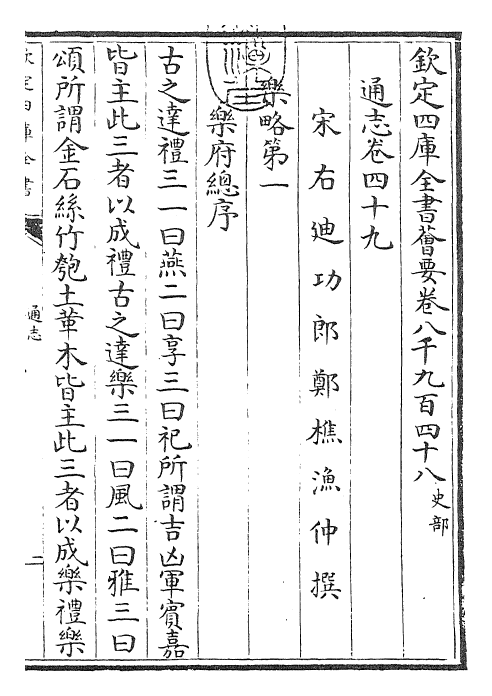 欽定四庫全書薈要卷八千九百四十八 史部
通志卷四十九
宋右迪功郎鄭樵漁仲撰
樂略第一
樂府總序
古之達禮三一曰燕二曰享三曰祀所謂吉凶軍賓嘉
皆主此三者以成禮古之達樂三一曰風二曰雅三曰
頌所謂金石絲竹匏土革木皆主此三者以成樂禮樂
欽定四庫全書
通志